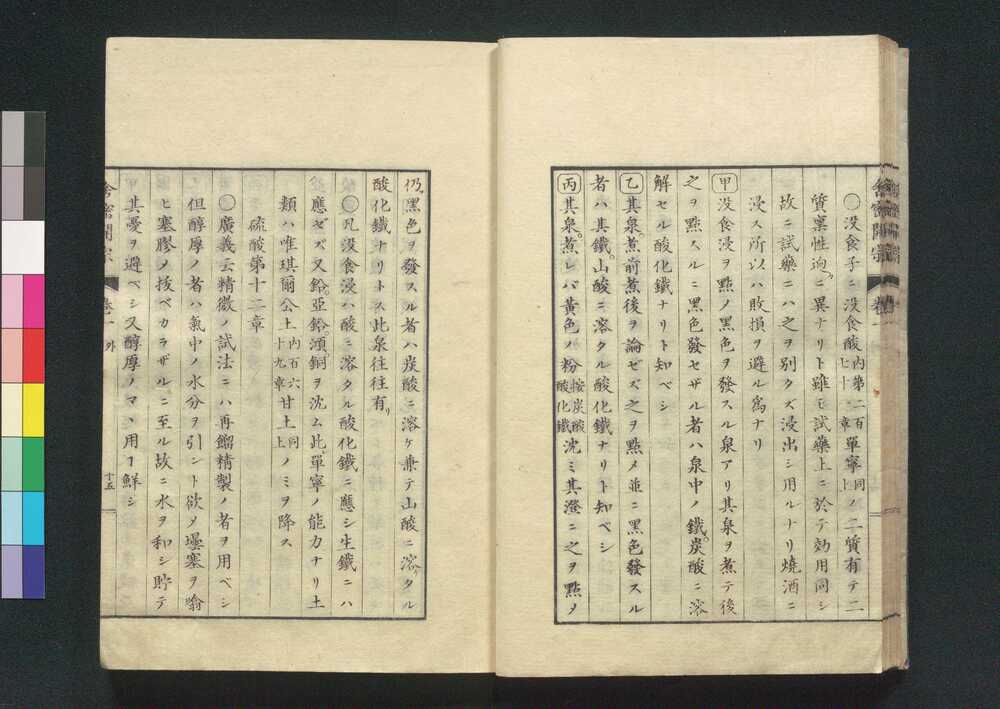 ◯没食子ニ没食酸内第二百七十章単寧同上ノ二質有テ二
質稟性逈ニ異ナリト雖モ試薬上ニ於テ効用同シ
故ニ試薬ニハ之ヲ別タズ浸出シ用ルナリ焼酒ニ
浸ス所以ハ敗損ヲ避ル為ナリ
甲没食浸ヲ點ノ黒色ヲ發スル泉アリ其泉ヲ煮テ後
之ヲ點スルニ黒色發セザル者ハ泉中ノ鐵炭酸ニ溶
解セル酸化鐵ナリト知ベシ
乙其泉煮前煮後ヲ論ゼズ之ヲ點メ並ニ黒色發スル
者ハ其鐵山酸ニ溶タル酸化鐵ナリト知ベシ
丙其泉煮レバ黄色ノ粉按炭酸酸化鐵沈ミ其澄ニ之ヲ點メ
仍黒色ヲ發スル者ハ炭酸ニ溶ケ兼テ山酸ニ溶タル
酸化鐵ナリトス此泉往往有リ
◯凡没食浸ハ酸ニ溶タル酸化鐵ニ應シ生鐵ニハ
應ゼズ又鉛亞鉛湏銅ヲ沈ム此単寧ノ能力ナリ土
類ハ唯琪爾公土内百六十九章甘土同上ノミヲ降ス
硫酸第十二章
◯廣義云精微ノ試法ニハ再餾精製ノ者ヲ用ベシ
但醇厚ノ者ハ氣中ノ水分ヲ引シト欲メ壜塞ヲ翕
ヒ塞膠ノ抜ベカラザルニ至ル故ニ水ヲ和シ貯テ
其憂ヲ避ベシ又醇厚ノマヽ用ヿ鮮シ
舎密開宗
巻一
外
十五